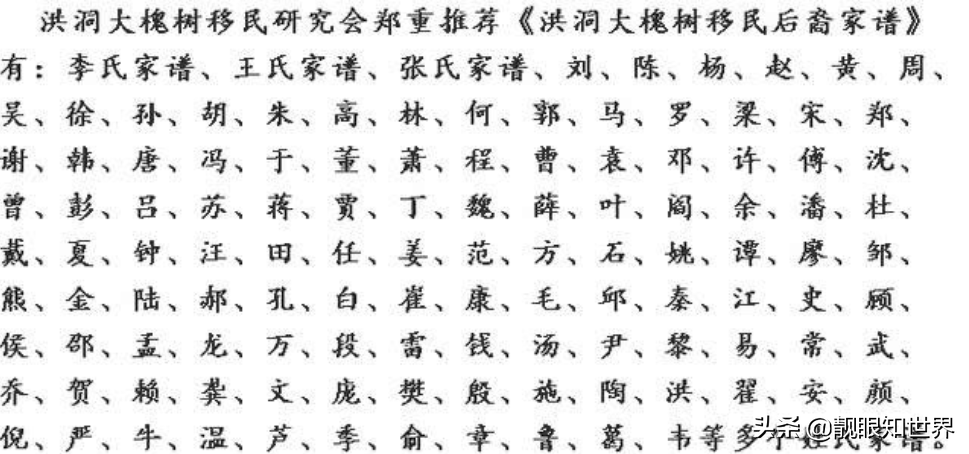 洪洞大槐树移民研究会郑重推荐《洪洞大槐树移民后裔家谱》
有：李氏家谱、王氏家谱、张氏家谱、刘、陈、杨、赵、黄、周、
吴、徐、孙、胡、朱、高、林、何、郭、马、罗、梁、宋、郑、
谢、韩、唐、冯、于、董、萧、程、曹、袁、邓、许、傅、沈、
曾、彭、吕、苏、蒋、贾、丁、魏、薛、叶、阎、余、潘、杜、
戴、夏、钟、汪、田、任、姜、范、方、石、姚、谭、廖、邹、
熊、金、陆、郝、孔、白、崔、康、毛、邱、秦、江、史、顾、
侯、邵、孟、龙、万、段、雷、钱、汤、尹、黎、易、常、武、
乔、贺、赖、龚、文、庞、樊、殷、施、陶、洪、翟、安、颜、
倪、严、牛、温、芦、季、俞、章、鲁、葛、韦等多个姓氏家谱。
头条 @靓眼知世界